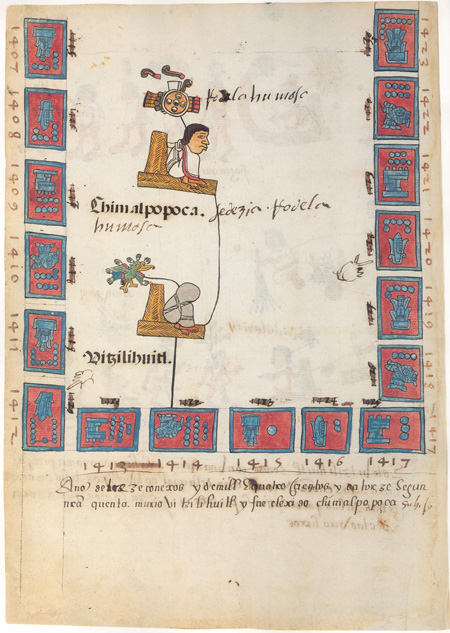 Rodela humosa
Chimalpopoca. se dezia. Rodela
humosa
Vitzilihuitl.
1407
1408
1409
1410
1411
1412
1413 1414 1415 1416 1417
1423
1422
1421
1420
1419
1418
1417
Año de treze conexos y de mill y quatro cientos y catorze segun
nra quenta. murio vitzilihuitl y fue elexido chimalpopoca su hijo